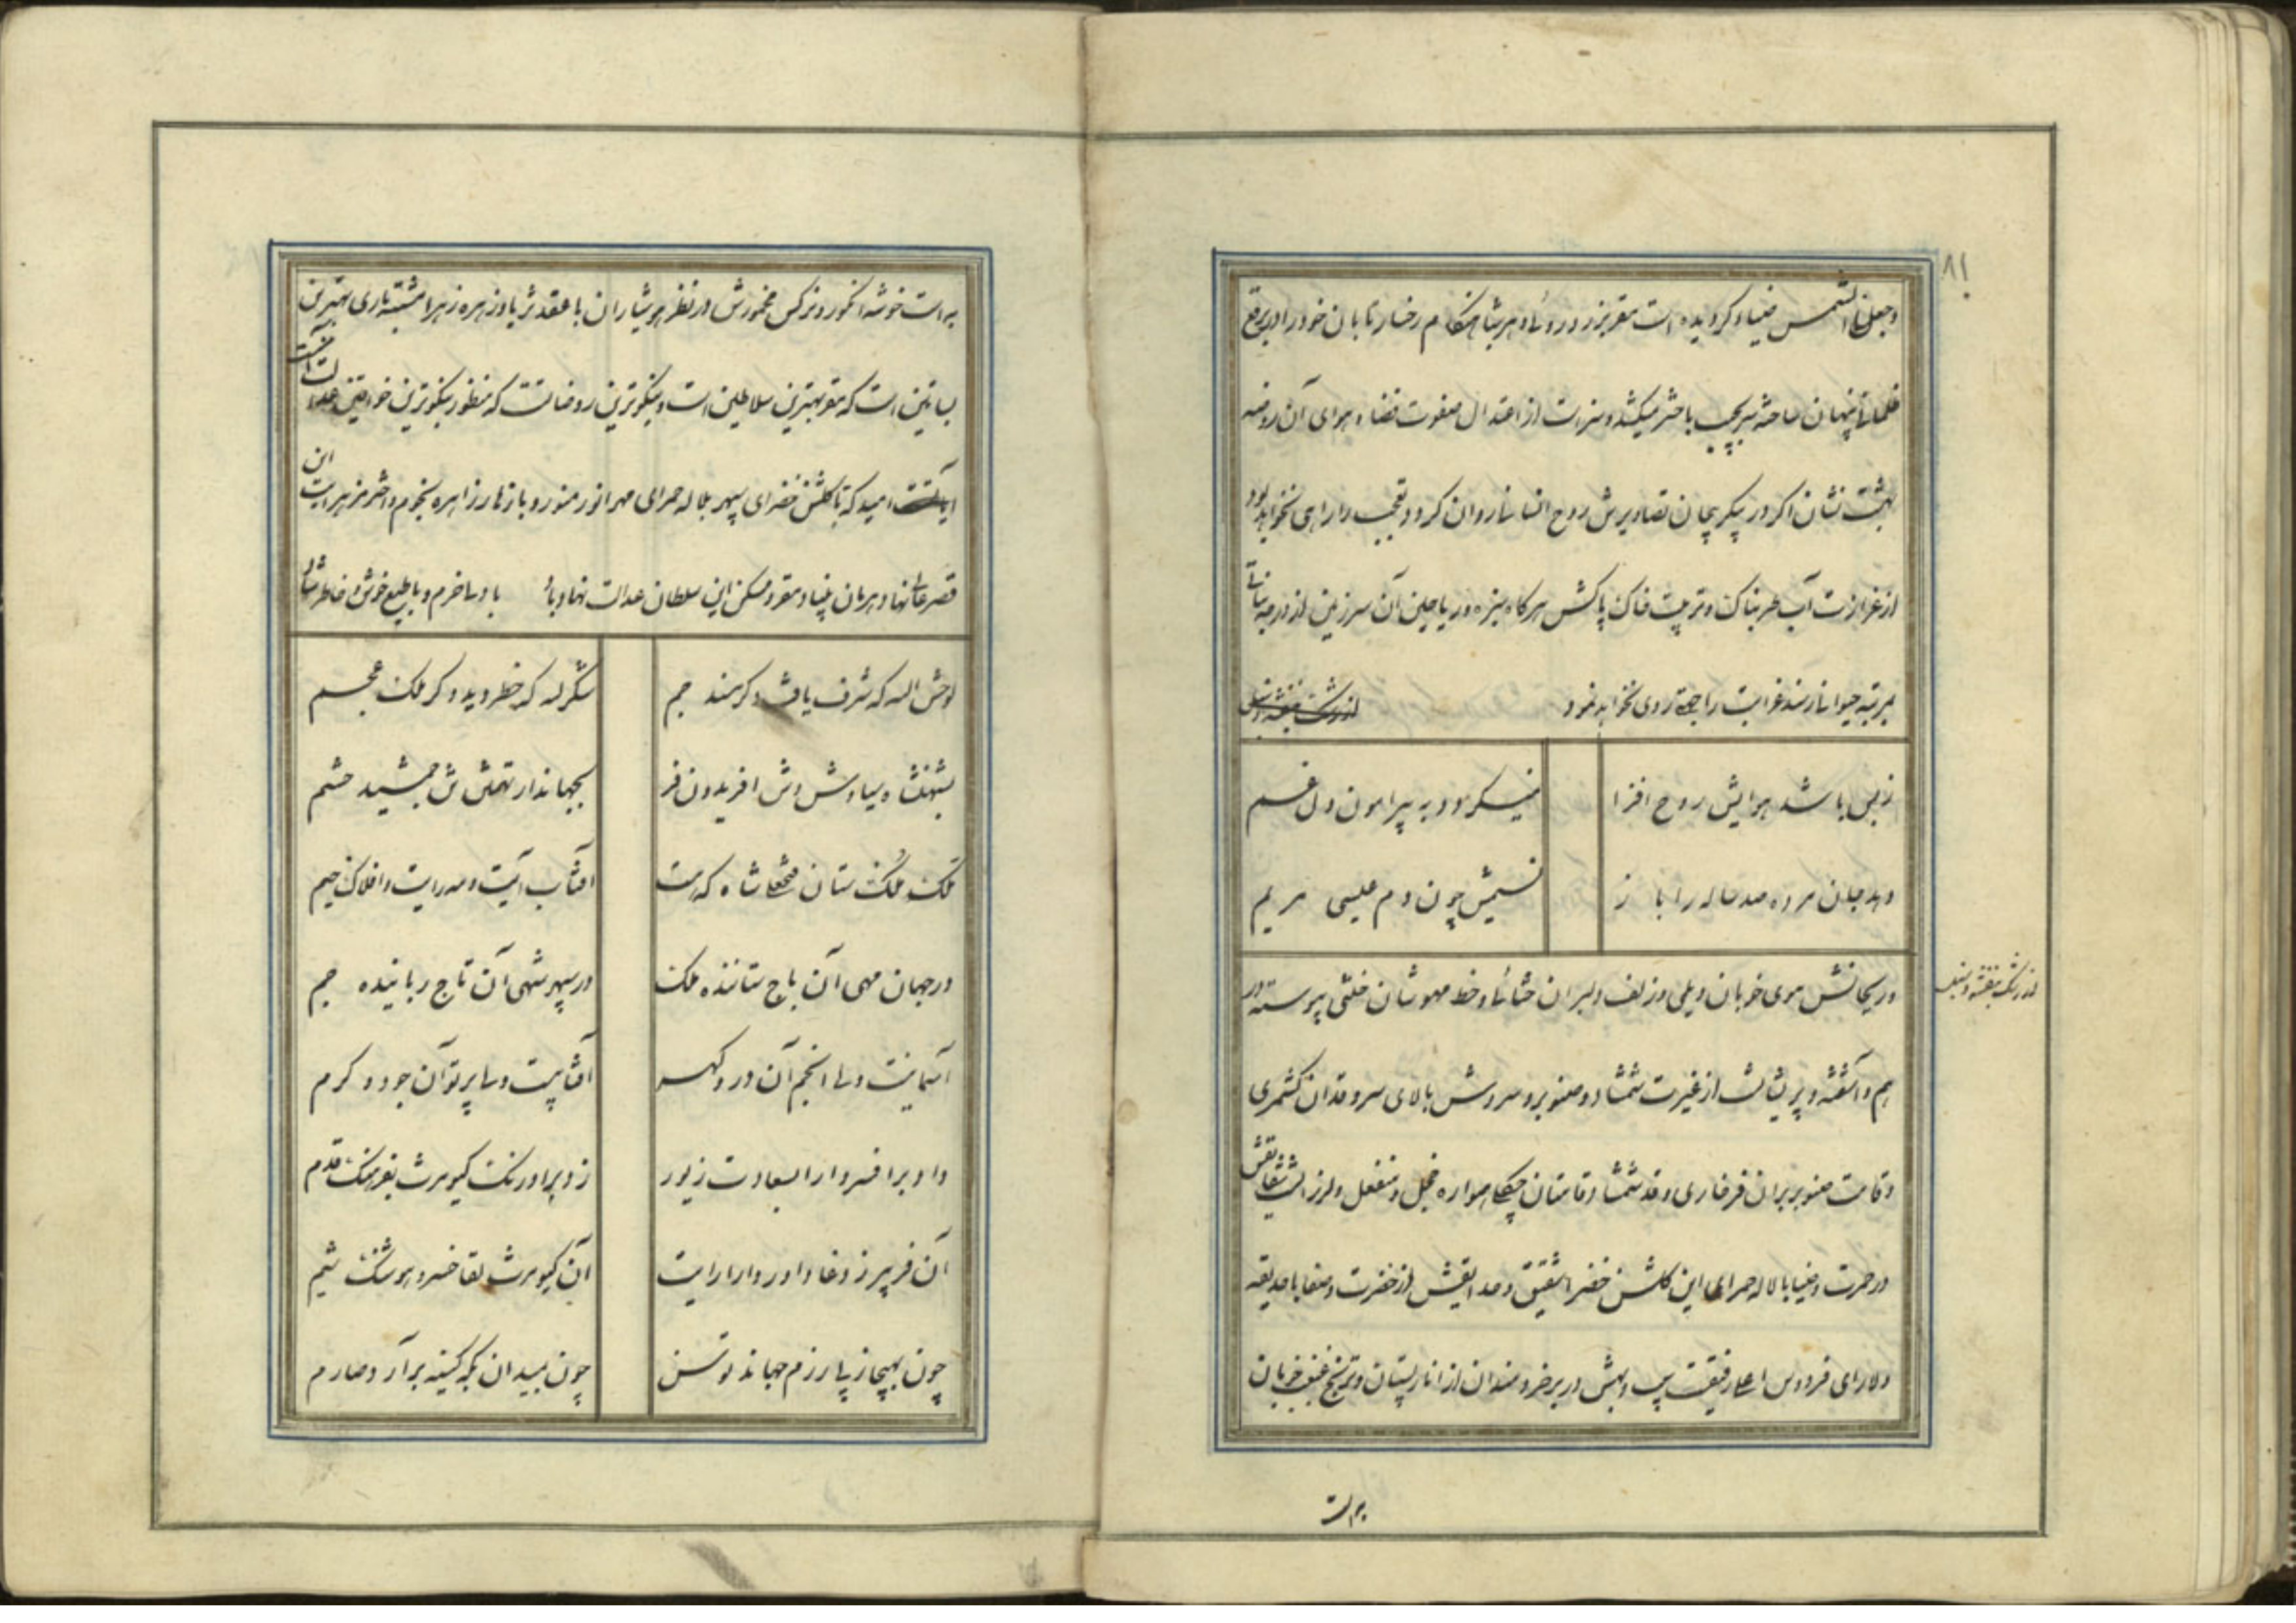 ۸۱
و جعلنا الشمس ضیاء کردیده است
ظلمانی پنهان ساخته سر بجیب باختر میکشد و سزاست از اعتدال صفوت فضا و هوای آن روضه
بهشت نشان اگر در پیکر بیجان تصاویرش روح انسانی روان گردد تعجب را راهی نخواهد بود
از غزارت آب طربناک و تربیت خاک پاکش هرگاه سبزه و ریاحین آن سرزمین از درجه نباتی
بمرتبه حیوانی رسند غرابت را جهة روی نخواهد نمود
ز بس باشد هوایش روح افزا
نمیگردد به پیرامون دل غم
دهد جان مرده صد ساله را باز
نسیمش چون دم عیسی مریم
از رشک بنفشه و سنبل
و ریحانش موی خوبان و زلف دلبران و خط مهوشان پیوسته در
هم و آشفته و پریشان است از غیرت شمشاد و صنوبر و سروش بالای سرو قدان کشمری
و قامت صنوبر بران فرخاری و قد شمشاد قامتان همواره خجل و منفعل و لرزانست شقایقش
در حمرت و ضیا با لاله حمرای این گلشن خضرا شقیق و حدایقش از خضرت و صفا با حدیقه
دلارای فردوس اعلی رفیقست سیب و بهش در بر خردمندان از نار پستان و ترنج غبغب خوبان
به است
به است خوشه انگور و نرگس مخمورش در نظر هوشیاران با عقد ثریا و زهره زهرا مشتبه باری بهترین
بساتین است که مقر بهترین سلاطین است و نیکوترین روضات است که منظور نیکوترین خواقین
امید که تا گلشن خضرای سپهر بلاله حمرای مهر انور منور و بازهار زاهره نجوم و اختر مزهر است این
قصر عالی نهاد و مقر و مسکن این سلطان عدالت نهاد باد با دلی خرم و با طبع خوش و خاطر شاد
لوحش الله که شرف یافت دگر مسند جم
شکر لله که خطر دید دگر ملک عجم
بشهنشاه سیاوش وش افریدون فر
بجهاندار تهمتن تن جمشید حشم
ملک ملک ستان فتحعلیشاه که هست
آفتاب آیت و مه رایت و افلاک خیم
در جهان مهی آن باج ستاننده ملک
در سپهر شهی آن تاج رباینده جم
آسمانیست ولی انجم آن در و گهر
آفتابیست ولی پرتو آن جود و کرم
داد بر افسر دارا بسعادت زیور
زد بر اورنگ کیومرث بفرهنگ قدم
آن فریبرز وغا داور دارا رایت
آن کیومرث لقا خسرو هوشنگ شیم
چون بهیجا ز پی رزم جهاند توسن
چون بمیدان گه کینه برآرد صارم